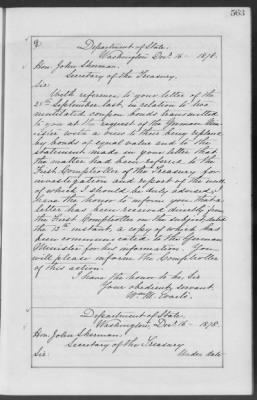 563
Department of State,
Washington Novr 16 - 1878.
Hon. John Sherman,
Secretary of the Treasury.
Sir:
With reference to your letter of the
21st September last, in relation to two
mutilated coupon bonds transmitted
to you at the request of the German Min-
ister with a view to their being replaced
by bonds of equal value and to the
statement made in your letter that
the matter had been referred to the
First Comptroller of the Treasury for
investigation and report of the result
of which I should be duly advised; I
have the honor to inform you that a
letter has been received directly from
the First Comptroller on the subject, dated
the 13th instant, a copy of which has
been communicated to the German
Minister for his information. You
will please inform the Comptroller
of this action.
I have the honor to be, Sir
Your obedient servant,
Wm. M. Evarts.
Department of State,
Washington, Novr 16 - 1878.
Hon. John Sherman,
Secretary of the Treasury
Sir: Under date